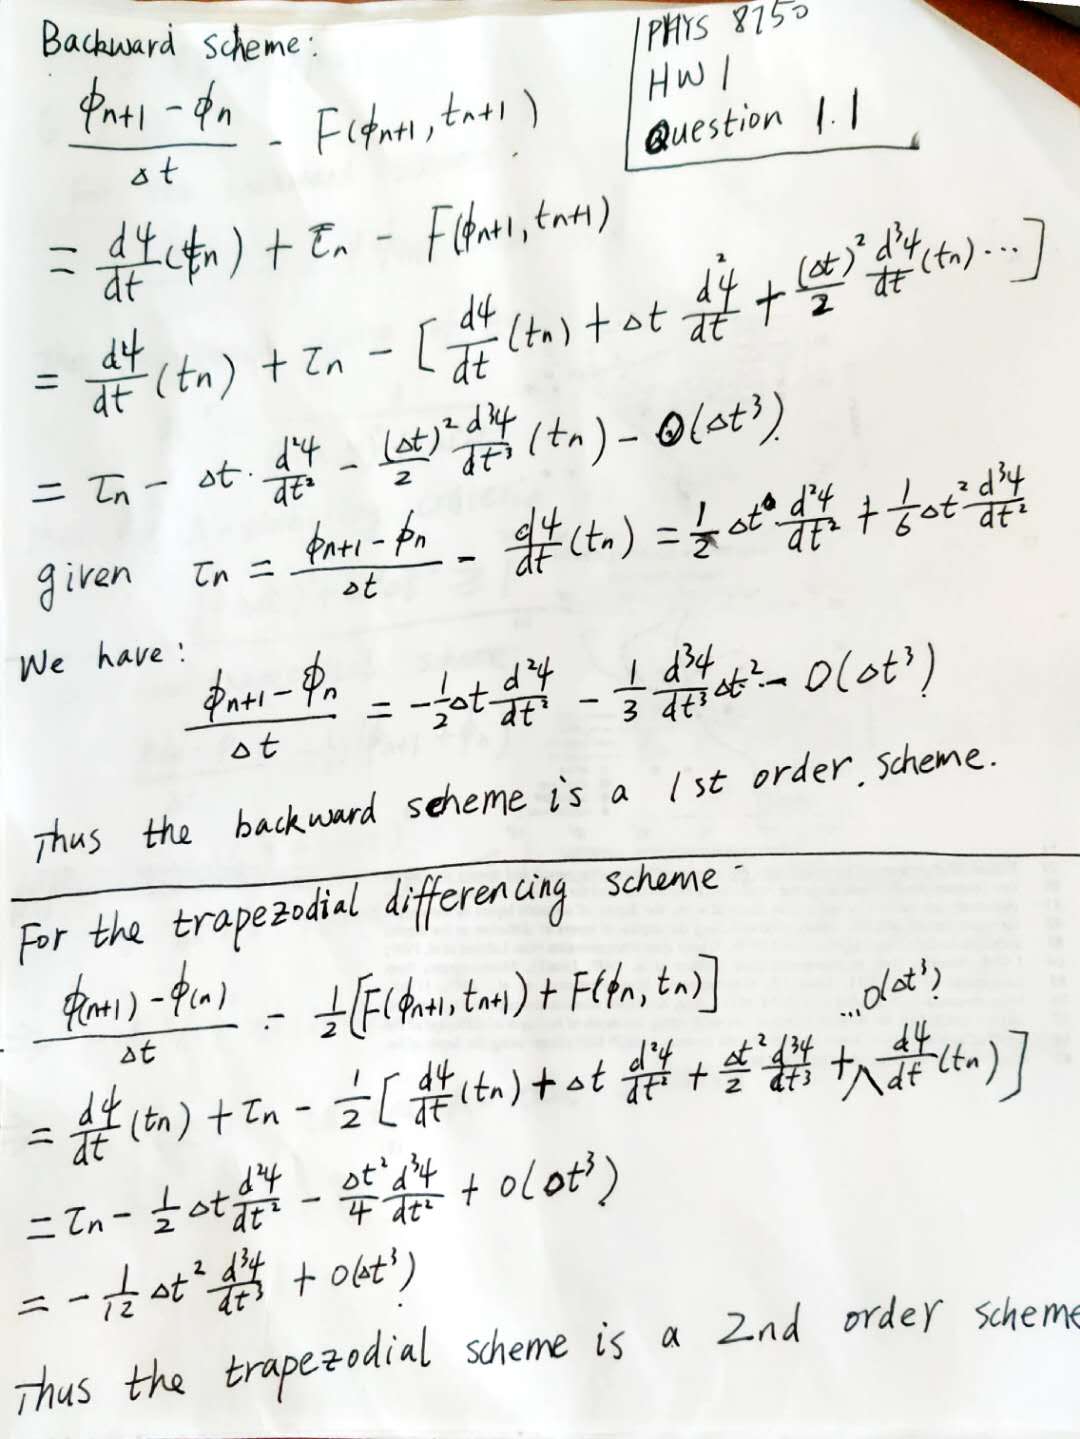 PHYS 8750
HW 1
Question 1.1
Backward scheme:
(ϕn+1 − ϕn)/Δt − F(ϕn+1, tn+1)
= dψ/dt (tn) + τn − F(ϕn+1, tn+1)
= dψ/dt (tn) + τn − [dψ/dt (tn) + Δt d²ψ/dt + (Δt)²/2 d³ψ/dt (tn) ...]
= τn − Δt · d²ψ/dt² − (Δt)²/2 d³ψ/dt³ (tn) − O(Δt³)
given τn = (ϕn+1 − ϕn)/Δt − dψ/dt (tn) = 1/2 Δt d²ψ/dt² + 1/6 Δt² d³ψ/dt²
We have:
(ϕn+1 − ϕn)/Δt = −1/2 Δt d²ψ/dt² − 1/3 d³ψ/dt³ Δt² − O(Δt³)
Thus the backward scheme is a 1st order scheme.
For the trapezodial differencing scheme
(ϕ(n+1) − ϕ(n))/Δt − 1/2 [F(ϕn+1, tn+1) + F(ϕn, tn)]
= dψ/dt (tn) + τn − 1/2 [dψ/dt (tn) + Δt d²ψ/dt² + Δt²/2 d³ψ/dt³ + ...O(Δt³) dψ/dt (tn)]
= τn − 1/2 Δt d²ψ/dt² − Δt²/4 d³ψ/dt² + O(Δt³)
= − 1/12 Δt² d³ψ/dt³ + O(Δt³)
Thus the trapezodial scheme is a 2nd order scheme